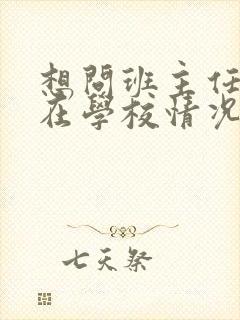 想問班主任
在學校情况
七天祭